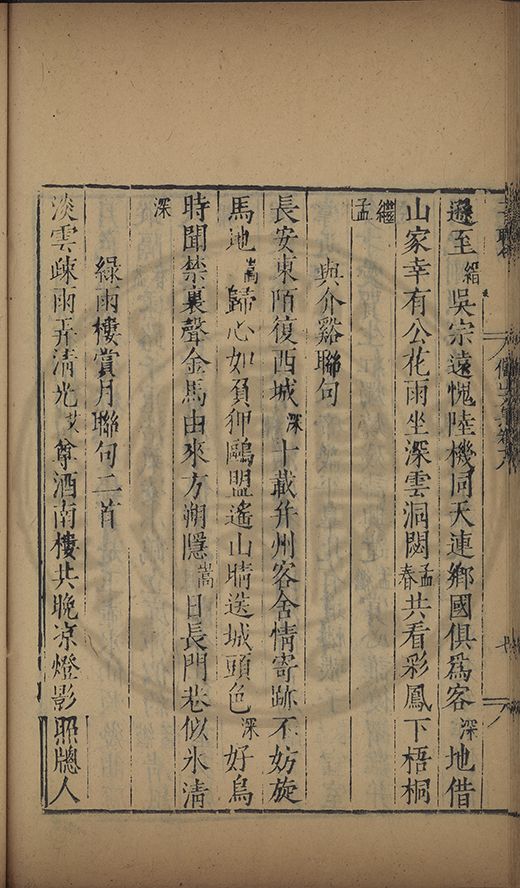 遯至縉吳宗遠愧陸機同天連鄉國俱為客深地借
山家幸有公花雨坐深雲洞闊孟春共看彩鳳下梧桐
繼孟
與介谿聯句
長安東陌復西城深十載幷州客舍情寄跡不妨旋
馬地嵩歸心如負狎鷗盟遙山晴送城頭色深好鳥
時聞禁裏聲金馬由來方朔隱嵩日長門巷似氷清
深
綠雨樓賞月聯句二首
淡雲疎雨弄清光尊酒南樓共晚凉燈影照牕人